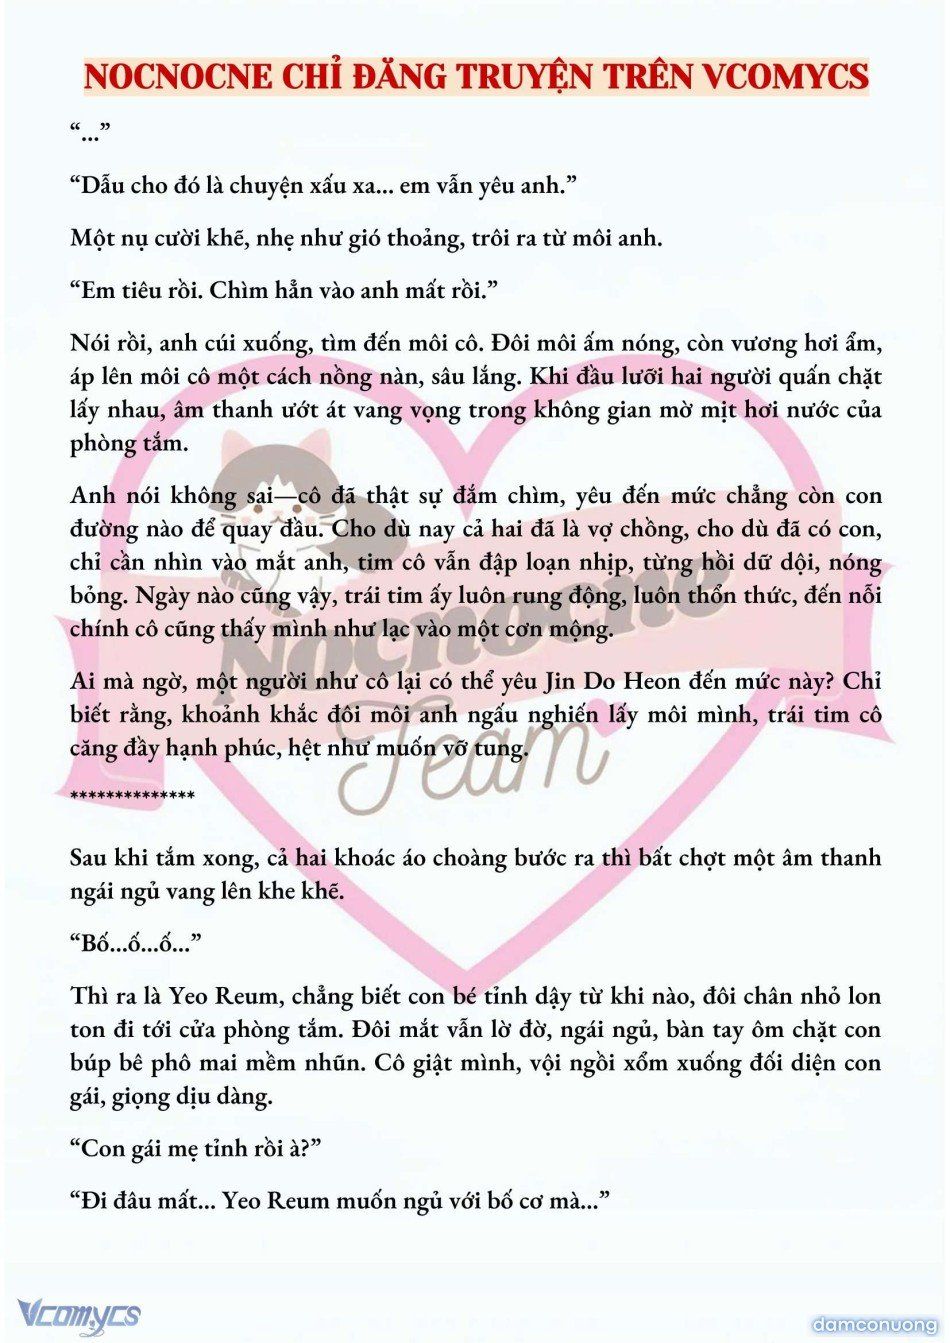 NOCNOCNE CHỈ ĐĂNG TRUYỆN TRÊN VCOMYCS
“...”
“Dẫu cho đó là chuyện xấu xa... em vẫn yêu anh.”
Một nụ cười khẽ, nhẹ như gió thoảng, trôi ra từ môi anh.
“Em tiêu rồi. Chìm hẳn vào anh mất rồi.”
Nói rồi, anh cúi xuống, tìm đến môi cô. Đôi môi ấm nóng, còn vương hơi ẩm,
áp lên môi cô một cách nồng nàn, sâu lắng. Khi đầu lưỡi hai người quấn chặt
lấy nhau, âm thanh ướt át vang vọng trong không gian mờ mịt hơi nước của
phòng tắm.
Anh nói không sai—cô đã thật sự đắm chìm, yêu đến mức chẳng còn con
đường nào để quay đầu. Cho dù nay cả hai đã là vợ chồng, cho dù đã có con,
chỉ cần nhìn vào mắt anh, tim cô vẫn đập loạn nhịp, từng hồi dữ dội, nóng
bỏng. Ngày nào cũng vậy, trái tim ấy luôn rung động, luôn thổn thức, đến nỗi
chính cô cũng thấy mình như lạc vào một cơn mộng.
Ai mà ngờ, một người như cô lại có thể yêu Jin Do Heon đến mức này? Chỉ
biết rằng, khoảnh khắc đôi môi anh ngấu nghiến lấy môi mình, trái tim cô
căng đầy hạnh phúc, hệt như muốn vỡ tung.
Nocnocne
Team
**************
Sau khi tắm xong, cả hai khoác áo choàng bước ra thì bất chợt một âm thanh
ngái ngủ vang lên khe khẽ.
“Bố...ố...ố...”
Thì ra là Yeo Reum, chẳng biết con bé tỉnh dậy từ khi nào, đôi chân nhỏ lon
ton đi tới cửa phòng tắm. Đôi mắt vẫn lờ đờ, ngái ngủ, bàn tay ôm chặt con
búp bê phô mai mềm nhũn. Cô giật mình, vội ngồi xổm xuống đối diện con
gái, giọng dịu dàng.
“Con gái mẹ tỉnh rồi à?”
“Đi đâu mất... Yeo Reum muốn ngủ với bố cơ mà...”
Vcomycs
damconuong